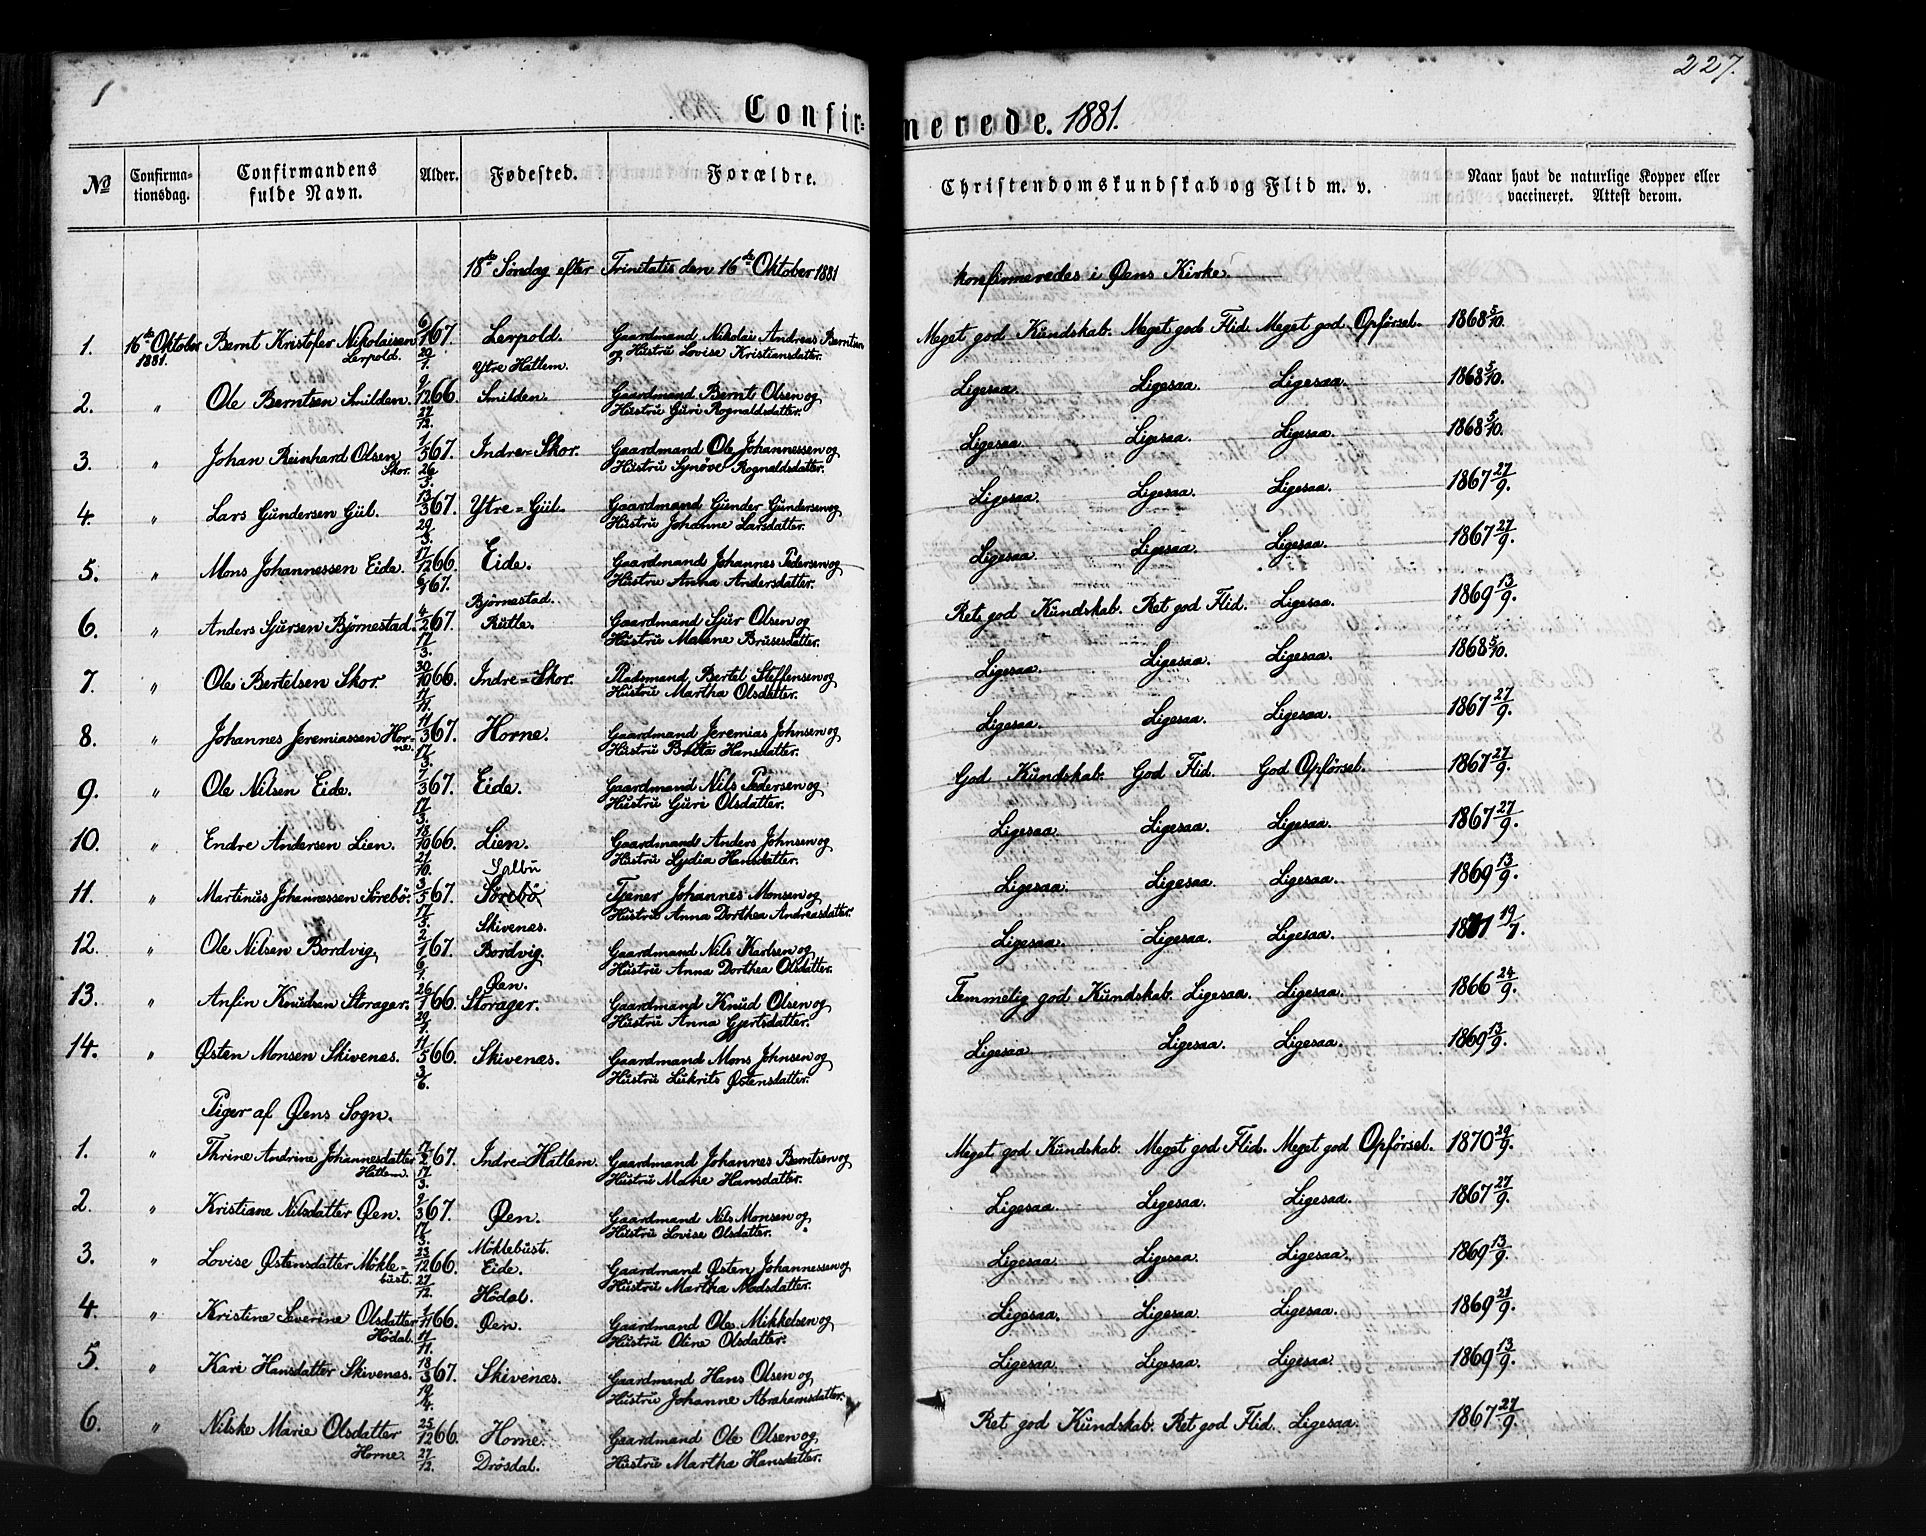 1
227.
Confirmerede. 1881.
No Confirmationsdag. Confirmandens fulde Navn. Alder. Fødested. Forældre. Christendomskundskab og Flid m. v. Naar havt de naturlige Kopper eller vaccineret. Attest derom.
18de Søndag efter Trinitatis den 16de Oktober 1881 konfirmeredes i Øens Kirke.
1. 16de Oktober Bernt Kristofer Nikolaisen 6/1 67. Lerpold. Gaardmand Nikolai Andreas Berntsen Meget god Kundskab. Meget god Flid. Meget god Opførsel. 1868 5/10.
1881. Lerpold. 20/1. Ytre Hatlem. og Hustru Lovise Kristiansdatter.
2. " Ole Berntsen Smilden. 9/12 66. Smilden. Gaardmand Bernt Olsen og Ligesaa. Ligesaa. Ligesaa. 1868 5/10.
27/12. Hustru Guri Rognaldsdatter.
3. " Johan Reinhard Olsen 1/5 67. Indre-Skor. Gaardmand Ole Johannessen og Ligesaa. Ligesaa. Ligesaa. 1868 5/10.
Skor. 26/5. Hustru Synøve Rognaldsdatter.
4. " Lars Gundersen Gül. 13/3 67. Ytre-Gül. Gaardmand Gunder Gundersen og Ligesaa. Ligesaa. Ligesaa. 1867 27/9.
29/3. Hustru Johanne Larsdatter.
5. " Mons Johannessen Eide. 17/12 66. Eide. Gaardmand Johannes Pedersen og Ligesaa. Ligesaa. Ligesaa. 1867 27/9.
6/1 67. Hustru Anna Andersdatter.
Bjørnestad.
6. " Anders Sjursen Bjørnestad. 4/2 67. Rutle. Gaardmand Sjur Olsen og Ret god Kundskab. Ret god Flid. Ligesaa. 1869 13/9.
17/3. Hustru Malene Brusesdatter.
7. " Ole Bertelsen Skor. 30/10 66. Indre-Skor. Pladsmand Bertel Steffensen og Ligesaa. Ligesaa. Ligesaa. 1868 5/10.
11/11. Hustru Martha Olsdatter.
8. " Johannes Jeremiassen Hor- 11/3 67. Horne. Gaardmand Jeremias Johnsen og Ligesaa. Ligesaa. Ligesaa. 1867 27/9.
ne. 17/3. Hustru Britta Hansdatter.
9. " Ole Nilsen Eide. 7/3 67. Eide. Gaardmand Nils Pedersen og God Kundskab. God Flid. God Opførsel. 1867 27/9.
17/3. Hustru Guri Olsdatter.
10. " Endre Andersen Lien. 18/10 66. Lien. Gaardmand Anders Johnsen og Ligesaa. Ligesaa. Ligesaa. 1867 27/9.
21/10. Hustru Lydia Hansdatter.
Salbu
11. " Martinus Johannessen Sörebö. 3/5 67. Sörebö Tjener Johannes Monsen og Ligesaa. Ligesaa. Ligesaa. 1869 13/9.
17/5. Hustru Anna Dorthea Andreasdatter.
Skivenæs.
12. " Ole Nilsen Bordvig, 2/1 67. Bordvig. Gaardmand Nils Karlsen og Ligesaa. Ligesaa. Ligesaa. 1871 19/7.
6/1. Hustru Anna Dorthea Olsdatter.
Øen.
13. " Anfin Knudsen Storager. 26/1 66. Storager. Gaardmand Knud Olsen og Temmelig god Kundskab. Ligesaa. Ligesaa. 1866 24/9.
29/1. Hustru Anna Gjertsdatter.
14. " Østen Monsen Skivenæs. 11/5 66. Skivenæs. Gaardmand Mons Johnsen og Ligesaa Ligesaa. Ligesaa. 1869 13/9.
3/6. Hustru Lukrits Østensdatter.
Piger af Øens Sogn.
1. " Thrine Andrine Johannesdatter 17/2 67. Indre-Hatlem. Gaardmand Johannes Berntsen og Meget god Kundskab. Meget god Flid. Meget god Opførsel. 1870 29/9.
Hatlem. 17/3. Hustru Marie Hansdatter.
2. " Kristiane Nilsdatter Øen. 9/3 67. Øen. Gaardmand Nils Monsen og Ligesaa. Ligesaa. Ligesaa. 1867 27/9.
17/3. Hustru Lovise Olsdatter.
Möklebust.
3. " Lovise Østensdatter Mökle- 23/12 66. Eide. Gaardmand Østen Johannessen og Ligesaa. Ligesaa. Ligesaa. 1869 13/9.
bust. 27/12. Hustru Martha Madsdatter.
Hödal.
4. " Kristine Severine Olsdatter 1/11 66. Øen. Gaardmand Ole Mikkelsen og Ligesaa. Ligesaa. Ligesaa. 1869 21/9.
Hödal. 11/11. Hustru Oline Olsdatter.
5. " Kari Hansdatter Skivenæs. 18/3 67. Skivenæs. Gaardmand Hans Olsen og Ligesaa. Ligesaa. Ligesaa. 1869 13/9.
19/4. Hustru Johanne Abrahamsdatter.
6. " Nilske Marie Olsdatter 25/12 66. Horne. Gaardmand Ole Olsen og Ret god Kundskab. Ret god Flid. Ligesaa. 1867 27/9.
Horne. 27/12. Drösdal. Hustru Martha Hansdatter.